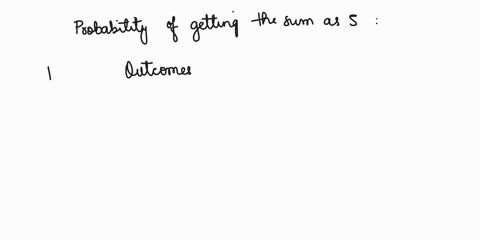 Probability of getting the sum as 5 :
1 Outcomes